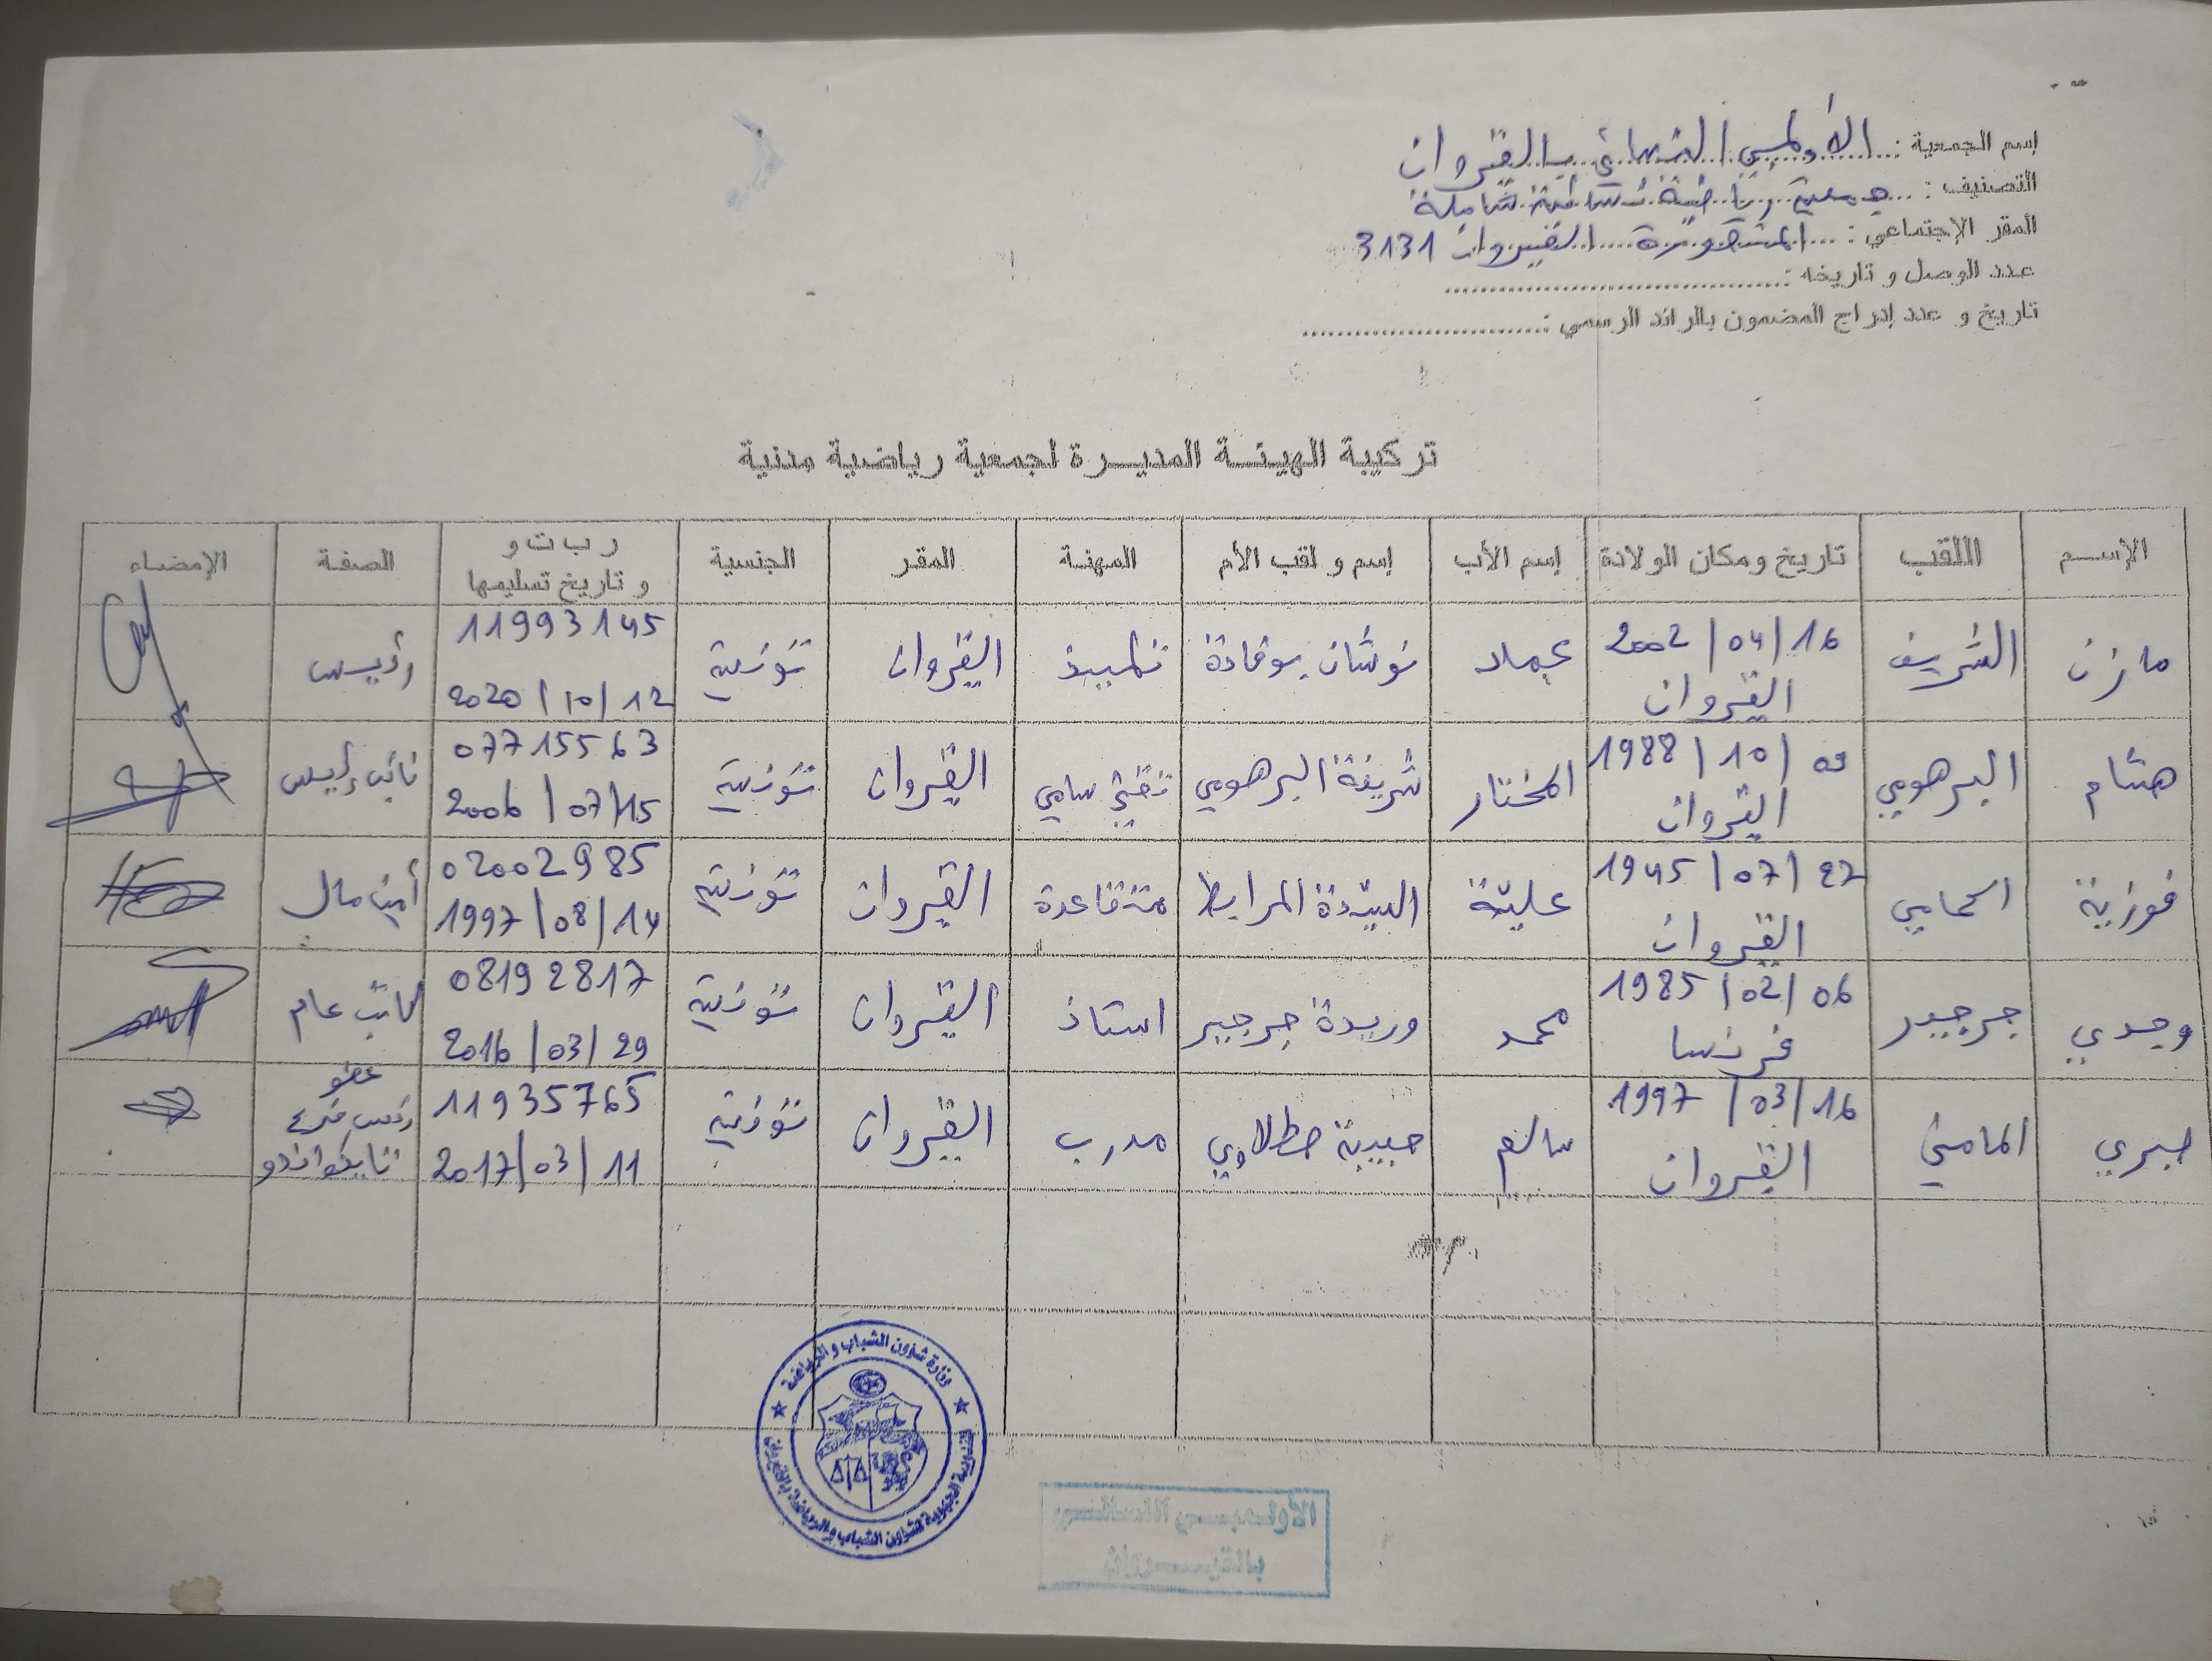 إسم الجمعية : الأولمبي النسائي بالقيروان
التصنيف : جمعية رياضية نسائية شاملة
المقر الإجتماعي : المنصورة القيروان 3131
عدد الوصل و تاريخه :
تاريخ و عدد إدراج المضمون بالرائد الرسمي :
تركيبة الهيئة المديرة لجمعية رياضية مدنية
الإسم اللقب تاريخ ومكان الولادة إسم الأب إسم و لقب الأم المهنة المقر الجنسية ر ب ت و و تاريخ تسليمها الصفة الإمضاء
مازن الشريف 16/04/2002 القيروان عماد نوشان بوقادة تلميذ القيروان تونسية 11993145 12/10/2020 رئيس
هشام البرهومي 09/10/1988 القيروان المختار شريفة البرهومي تقني سامي القيروان تونسية 07715563 15/07/2006 نائب رئيس
فوزية 27/07/1945 القيروان علية السيدة المرابط متقاعدة القيروان تونسية 02002985 14/08/1997 أمين مال
وجدي جرجير 06/02/1985 فرنسا محمد وريدة جرجير استاذ القيروان تونسية 08192817 29/03/2016 كاتب عام
صبري المامني 16/03/1997 القيروان سالم حبيبة مدرب القيروان تونسية 11935765 11/03/2017 عضو رئيس فرع تايكواندو
وزارة شؤون الشباب و الرياضة
المندوبية الجهوية لشؤون الشباب والرياضة بالقيروان
الأولمبي النسائي
بالقيروان